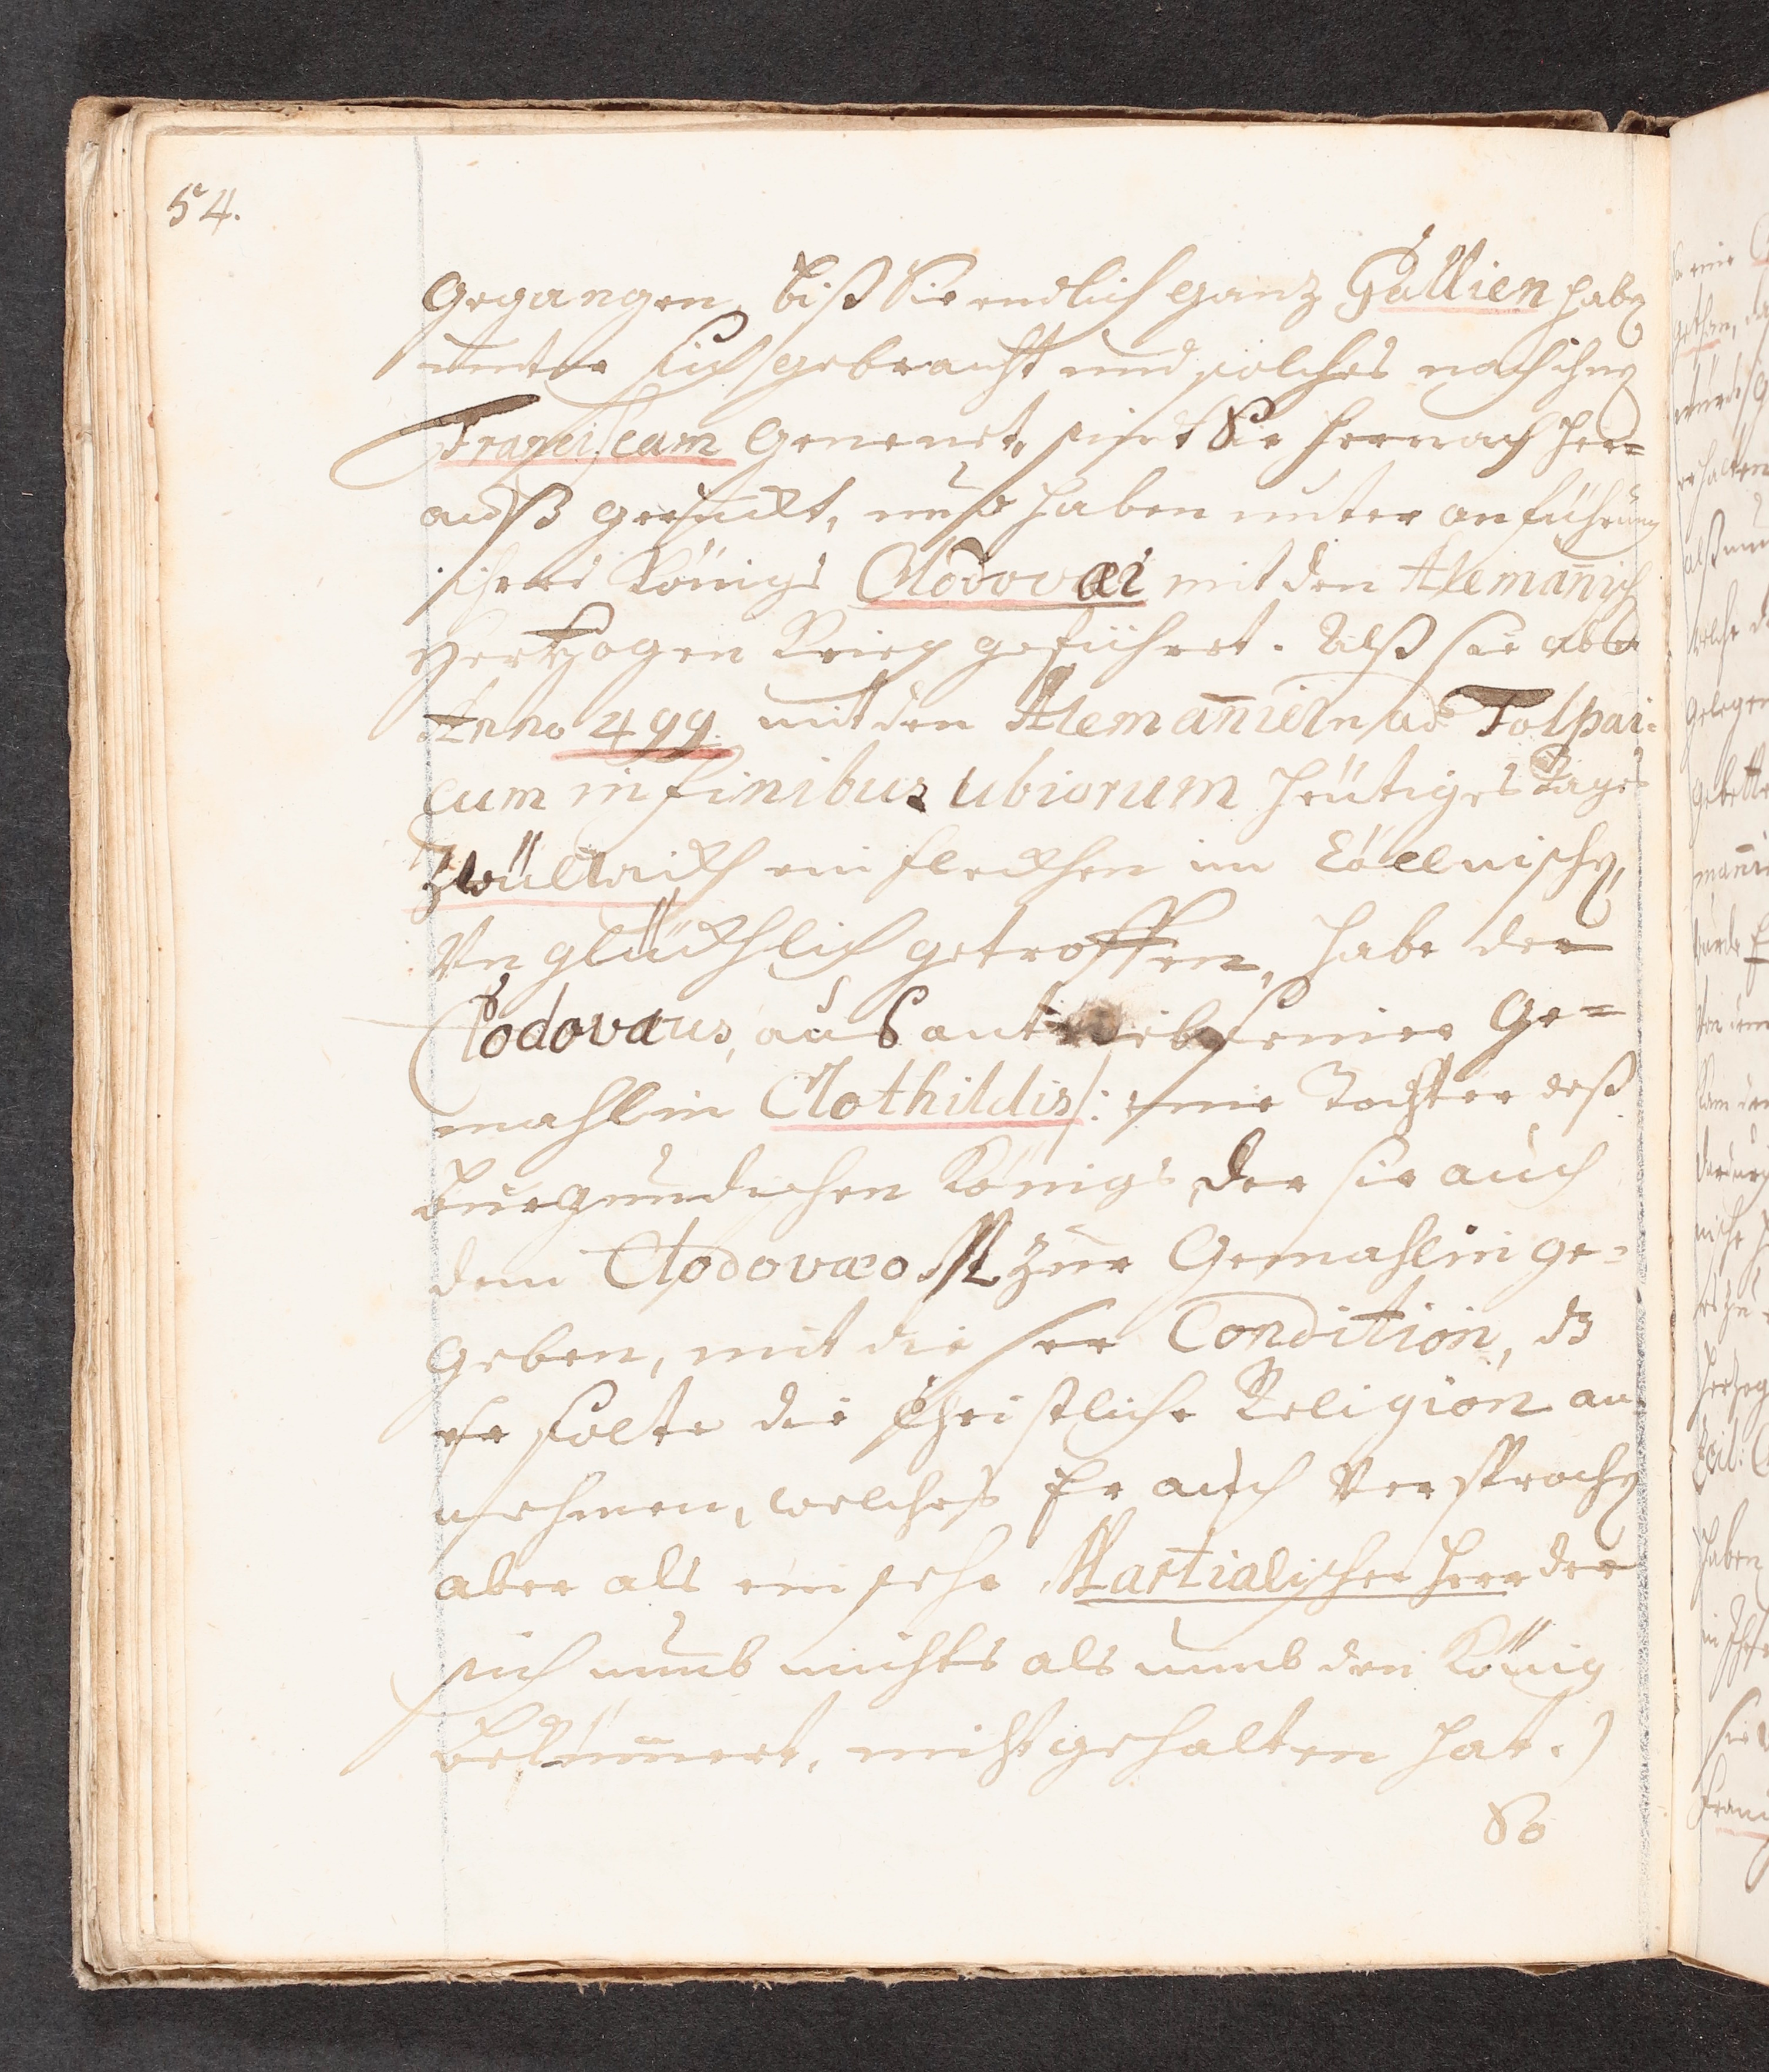 54.
gegangen, biß Sie endlich ganz Gallien haben
unter sich gebracht und solches nach ihnen
Franciscam genenet, sindt Sie hernach her=
auß geruckt, und haben unter anführung
ihres Königs Clodovæi mit den Alemañisch
Hertzogen Krieg geführt. Alß sie aber
Anno 499. mit den Alemañiern ad Tolpai=
cum in finibus ubiorum heütiges Tages
Zwüllrikh ein flekhen im Cöllnischen,
Unglükhlich getroffen, habe der
Clodovæus, auß antrieb seiner Ge=
mahlin Clothildis /: eine Tochter deß
burgundischen Königs der sie auch
dem Clodovæo M zur Gemahlin ge=
geben, mit dieser Condition, dz
er solte die Christliche Religion an
nehmen, welches Er auch versprochen
aber als ein sehr Martialischer Herr der
sich umb nichts als umb den König
bekümmert, nicht gehalten hat.)
So